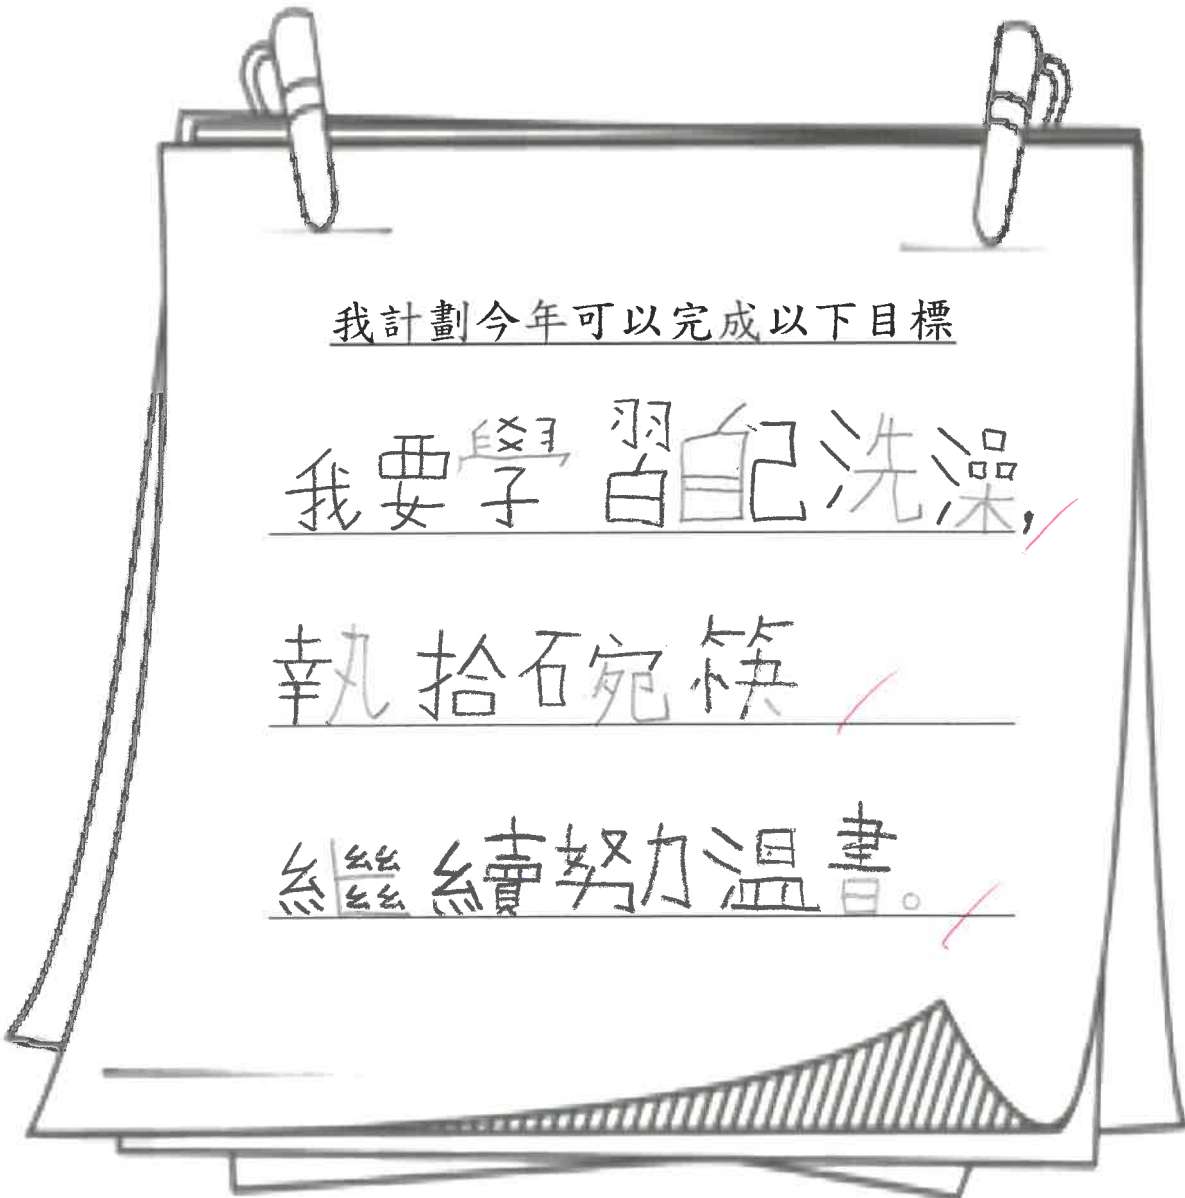 我計劃今年可以完成以下目標
我要學習自己洗澡,
執拾碗筷
繼續努力溫書。